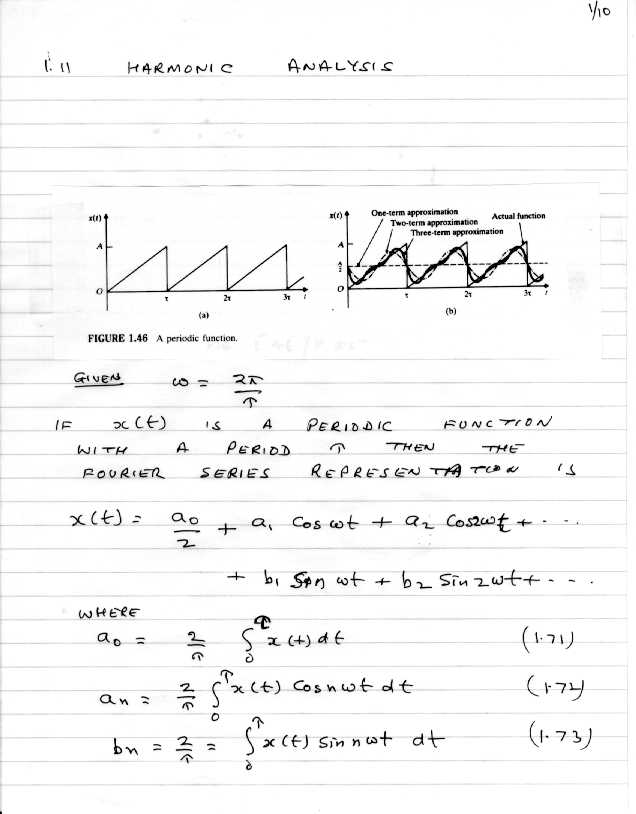 1/10
1.11 HARMONIC ANALYSIS
x(t)
A
O
τ 2τ 3τ t
(a)
x(t)
One-term approximation
Two-term approximation
Three-term approximation
Actual function
A
A/2
O
τ 2τ 3τ t
(b)
FIGURE 1.46 A periodic function.
GIVEN ω = 2π/τ
IF x(t) IS A PERIODIC FUNCTION
WITH A PERIOD τ THEN THE
FOURIER SERIES REPRESENTATION IS
x(t) = a₀/2 + a₁ Cos ωt + a₂ Cos2ωt + - - -
+ b₁ Sin ωt + b₂ Sin 2ωt + - - -
WHERE
a₀ = 2/τ ∫₀^τ x(t) dt (1.71)
aₙ = 2/τ ∫₀^τ x(t) Cos nωt dt (1.72)
bₙ = 2/τ = ∫₀^τ x(t) Sin nωt dt (1.73)